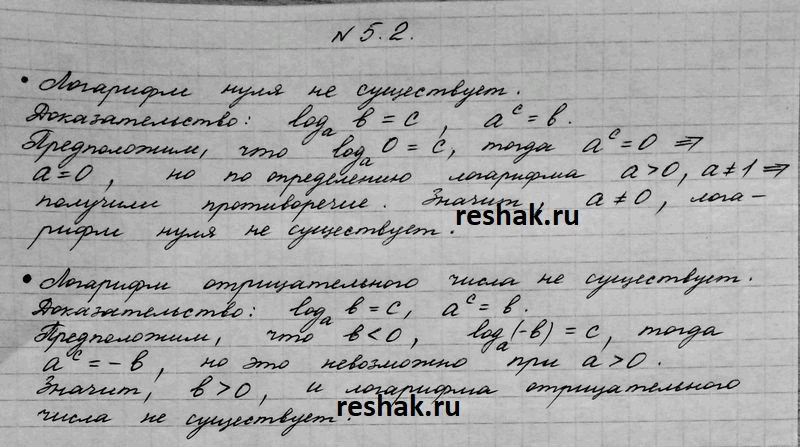 N 5.2.
• Логарифм нуля не существует.
Доказательство: logₐ b = c, aᶜ = b.
Предположим, что logₐ 0 = c, тогда aᶜ = 0 ⇒
a = 0, но по определению логарифма a > 0, a ≠ 1 ⇒
получили противоречие. Значит, a ≠ 0, лога-
reshak.ru
рифм нуля не существует.
• Логарифм отрицательного числа не существует.
Доказательство: logₐ b = c, aᶜ = b.
Предположим, что b < 0, logₐ (-b) = c, тогда
aᶜ = - b, но это невозможно при a > 0.
Значит, b > 0, и логарифма отрицательного
числа не существует.
reshak.ru